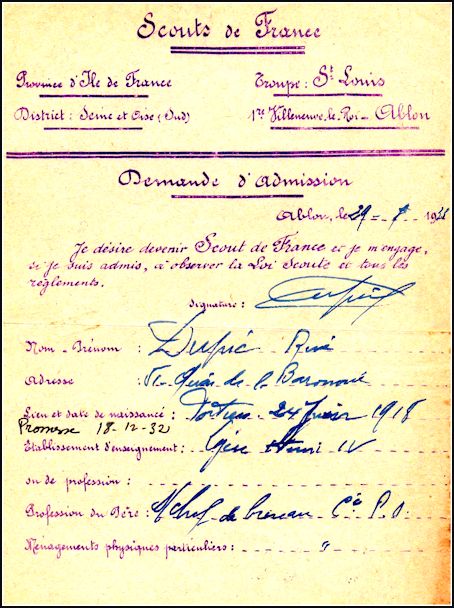 Scouts de France
Province d'Ile de France
Troupe: St Louis
District: Seine et Oise (Sud)
1re Villeneuve-le-Roi - Ablon
Demande d'admission
Ablon, le 29
Je désire devenir Scout de France et je m'engage,
si je suis admis, à observer la Loi Scoute et tous les
règlements.
Signature:
Nom - Prénom: René
Adresse: Quai de la Baronnie
Lieu et date de naissance: Poitiers 1918
Promesse 18-12-32
Etablissement d'enseignement: Lycée Henri IV
ou de profession:
Profession du Père: chef de bureau Cie P.O.
Ménagements physiques particuliers: "